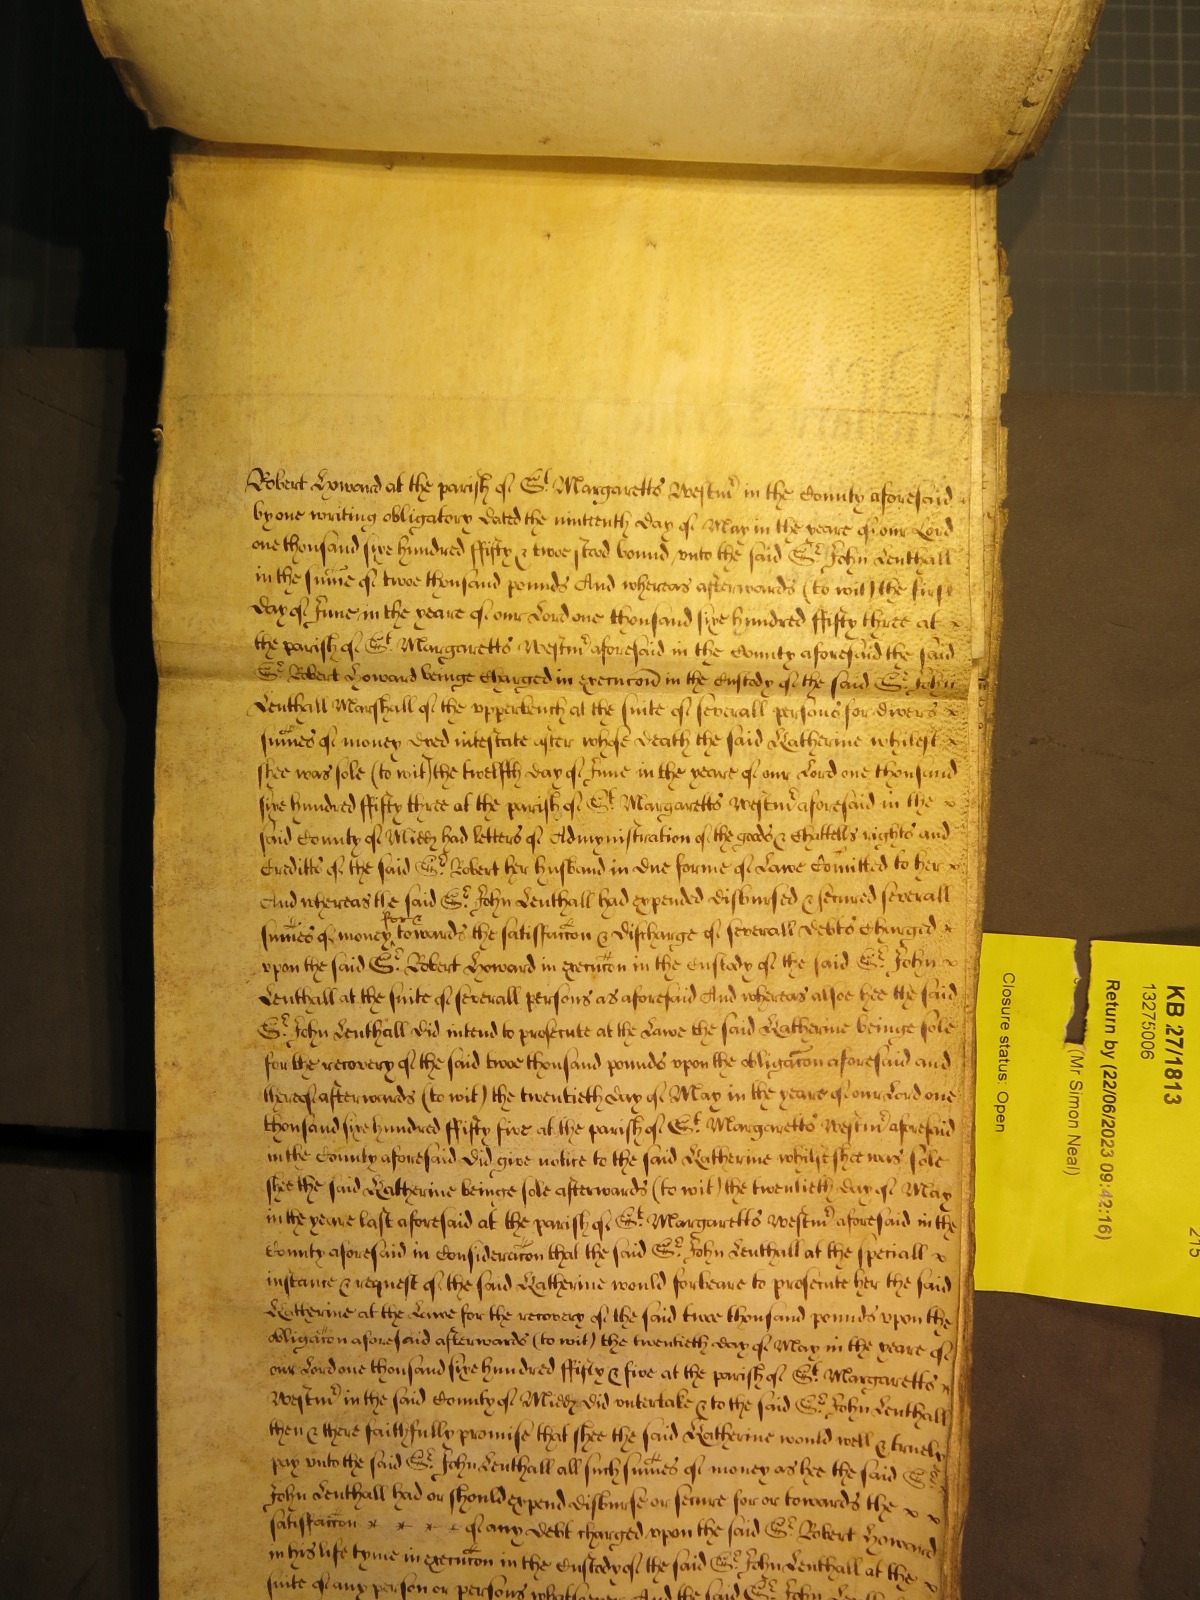 Robert Howard at the parish of St. Margaretts Westmr in the County aforesaid
by one writing obligatory dated the ninteenth day of May in the yeare of our Lord
one thousand sixe hundred ffifty & twoe stood bound vnto the said Sr. John Lenthall
in the sume of twoe thousand pounds And whereas afterwards (to wit) the first
day of June in the yeare of our Lord one thousand sixe hundred ffifty three at x
the parish of St. Margaretts Westmr aforesaid in the County aforesaid the said
Sr. Robert Howard beinge Charged in execucon in the Custody of the said Sr. John
Lenthall Marshall of the vpperbench at the suite of severall persons for divers x
sumes of money dyed intestate after whose death the said Katherine whilest x
shee was sole (to wit) the twelfth day of June in the yeare of our Lord one thousand
sixe hundred ffifty three at the parish of St. Margaretts Westmr aforesaid in the x
said County of Middx had letters of Admynistration of the goods & Chattells rights and
Creditts of the said Sr. Robert her husband in due forme of Lawe Comitted to her x
And whereas the said Sr. John Lenthall had expended disbursed & secured severall
sumes of money for & towards the satisfaccon & discharge of severall debts Charged x
vpon the said Sr. Robert Howard in execucon in the Custody of the said Sr. John x
Lenthall at the suite of severall persons as aforesaid And whereas alsoe hee the said
Sr. John Lenthall did intend to prosecute at the Lawe the said Katherine beinge sole
for the recovery of the said twoe thousand pounds vpon the obligacon aforesaid and
thereof afterwards (to wit) the twentieth day of May in the yeare of our Lord one
thousand sixe hundred ffifty five at the parish of St. Margaretts Westmr aforesaid
in the County aforesaid did give notice to the said Katherine whilst shee was sole
shee the said Katherine beinge sole afterwards (to wit) the twentieth day of May
in the yeare last aforesaid at the parish of St. Margaretts Westmr aforesaid in the
County aforesaid in Consideracon that the said Sr. John Lenthall at the speciall x
instance & request of the said Katherine would forbeare to prosecute her the said
Katherine at the Lawe for the recovery of the said twoe thousand pounds vpon the
obligacon aforesaid afterwards (to wit) the twentieth day of May in the yeare of
our Lord one thousand sixe hundred ffifty & five at the parish of St. Margaretts x
Westmr in the said County of Middx did vntertake & to the said Sr. John Lenthall
then & there faithfully promise that shee the said Katherine would well & truely
pay vnto the said Sr. John Lenthall all such sumes of money as hee the said Sr.
John Lenthall had or should expend disburse or secure for or towards the x x
satisfaccon x x x x of any debt charged vpon the said Sr. Robert Howard
in his life tyme in execucon in the Custody of the said Sr. John Lenthall at the x
suite of any person or persons whatsoever And the said Sr. John
KB 27/1813
13275006
Return by (22/06/2023 09:42:16)
(Mr Simon Neal)
Closure status: Open
215